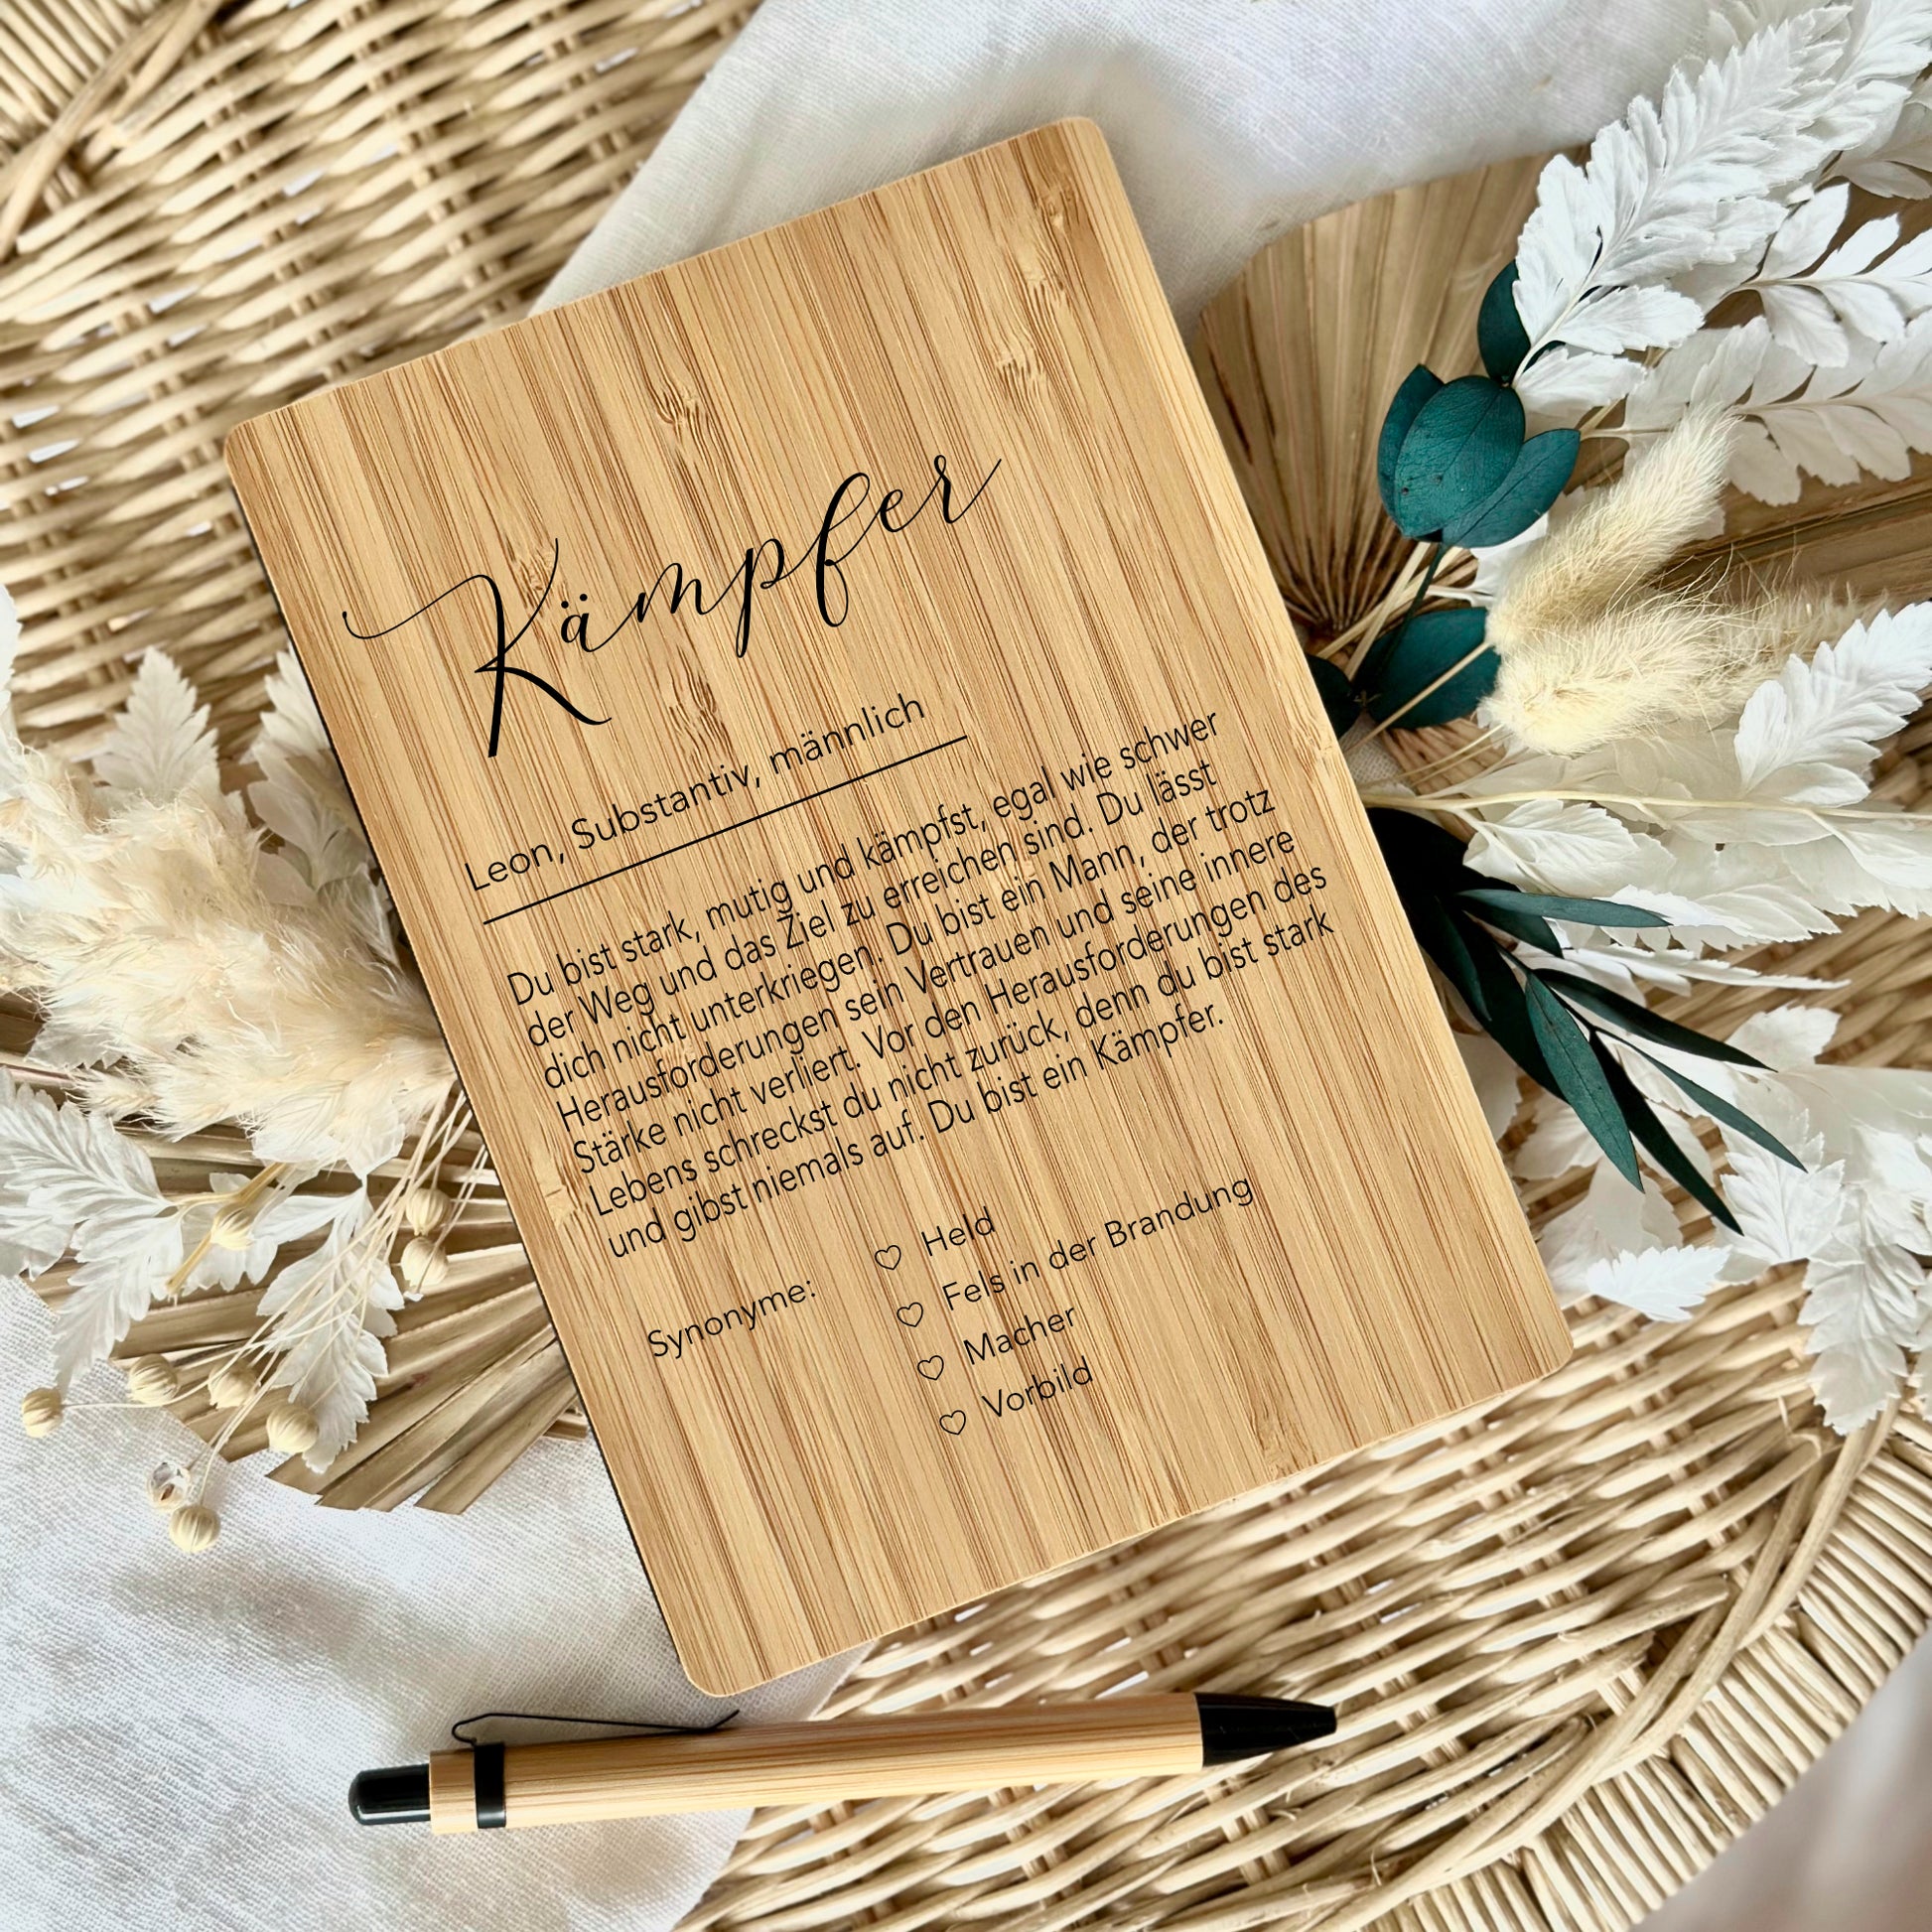 Kämpfer
Leon, Substantiv, männlich
Du bist stark, mutig und kämpfst, egal wie schwer
der Weg und das Ziel zu erreichen sind. Du lässt
dich nicht unterkriegen. Du bist ein Mann, der trotz
Herausforderungen sein Vertrauen und seine innere
Stärke nicht verliert. Vor den Herausforderungen des
Lebens schreckst du nicht zurück, denn du bist stark
und gibst niemals auf. Du bist ein Kämpfer.
Synonyme:
Held
Fels in der Brandung
Macher
Vorbild